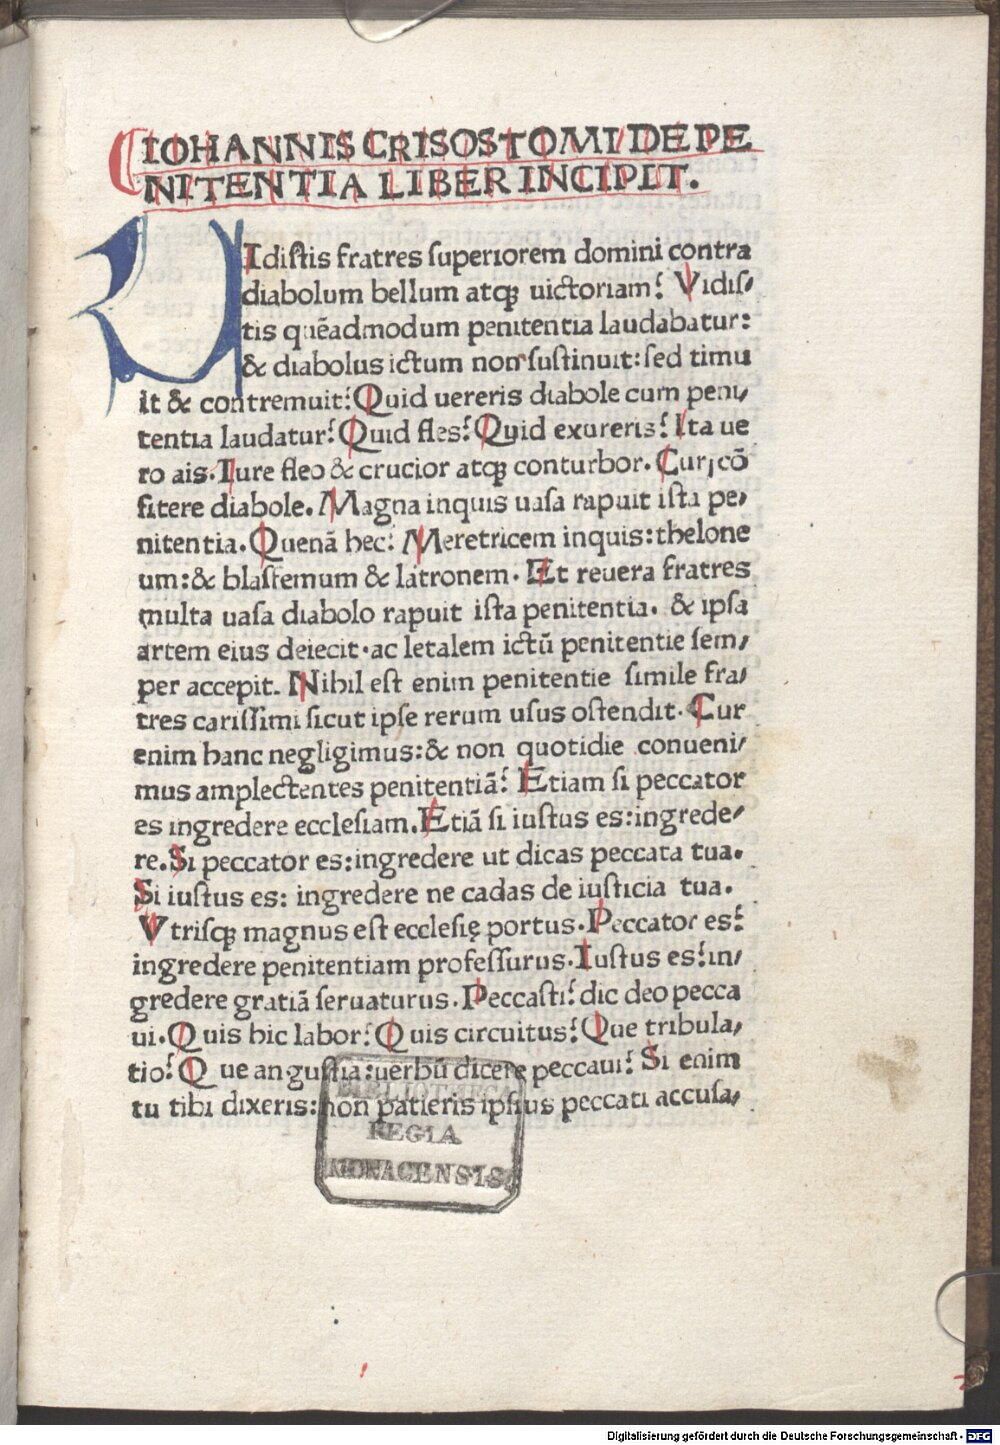 IOHANNIS CRISOSTOMI DE PE
NITENTIA LIBER INCIPIT.
UIdistis fratres superiorem domini contra
diabolum bellum atqꝫ uictoriam? Vidis/
tis quēadmodum penitentia laudabatur:
& diabolus ictum non sustinuit: sed timu
it & contremuit? Quid uereris diabole cum peni/
tentia laudatur? Quid fles? Quid exureris? Ita ue
ro ais. Iure fleo & crucior atqꝫ conturbor. Cur, cō
fitere diabole. Magna inquis uasa rapuit ista pe/
nitentia. Quenā hec? Meretricem inquis: thelone
um: & blasfemum & latronem. Et reuera fratres
multa uasa diabolo rapuit ista penitentia. & ipsa
artem eius deiecit. ac letalem ictū penitentie sem/
per accepit. Nihil est enim penitentie simile fra/
tres carissimi sicut ipse rerum usus ostendit. Cur
enim hanc negligimus: & non quotidie conueni/
mus amplectentes penitentiā? Etiam si peccator
es ingredere ecclesiam. Etiā si iustus es: ingrede/
re. Si peccator es: ingredere ut dicas peccata tua.
Si iustus es: ingredere ne cadas de iusticia tua.
Vtrisqꝫ magnus est ecclesię portus. Peccator es?
ingredere penitentiam professurus. Iustus es? in/
gredere gratiā seruaturus. Peccasti? dic deo pecca
ui. Quis hic labor? Quis circuitus? Que tribula/
tio? Que angustia: uerbū dicere peccaui? Si enim
tu tibi dixeris: non patieris ipsius peccati accusa/
BIBLIOTHECA
REGIA
MONACENSIS.
Digitalisierung gefördert durch die Deutsche Forschungsgemeinschaft - DFG